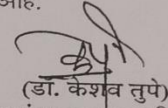 आहे.
(डॉ. केशव तुपे